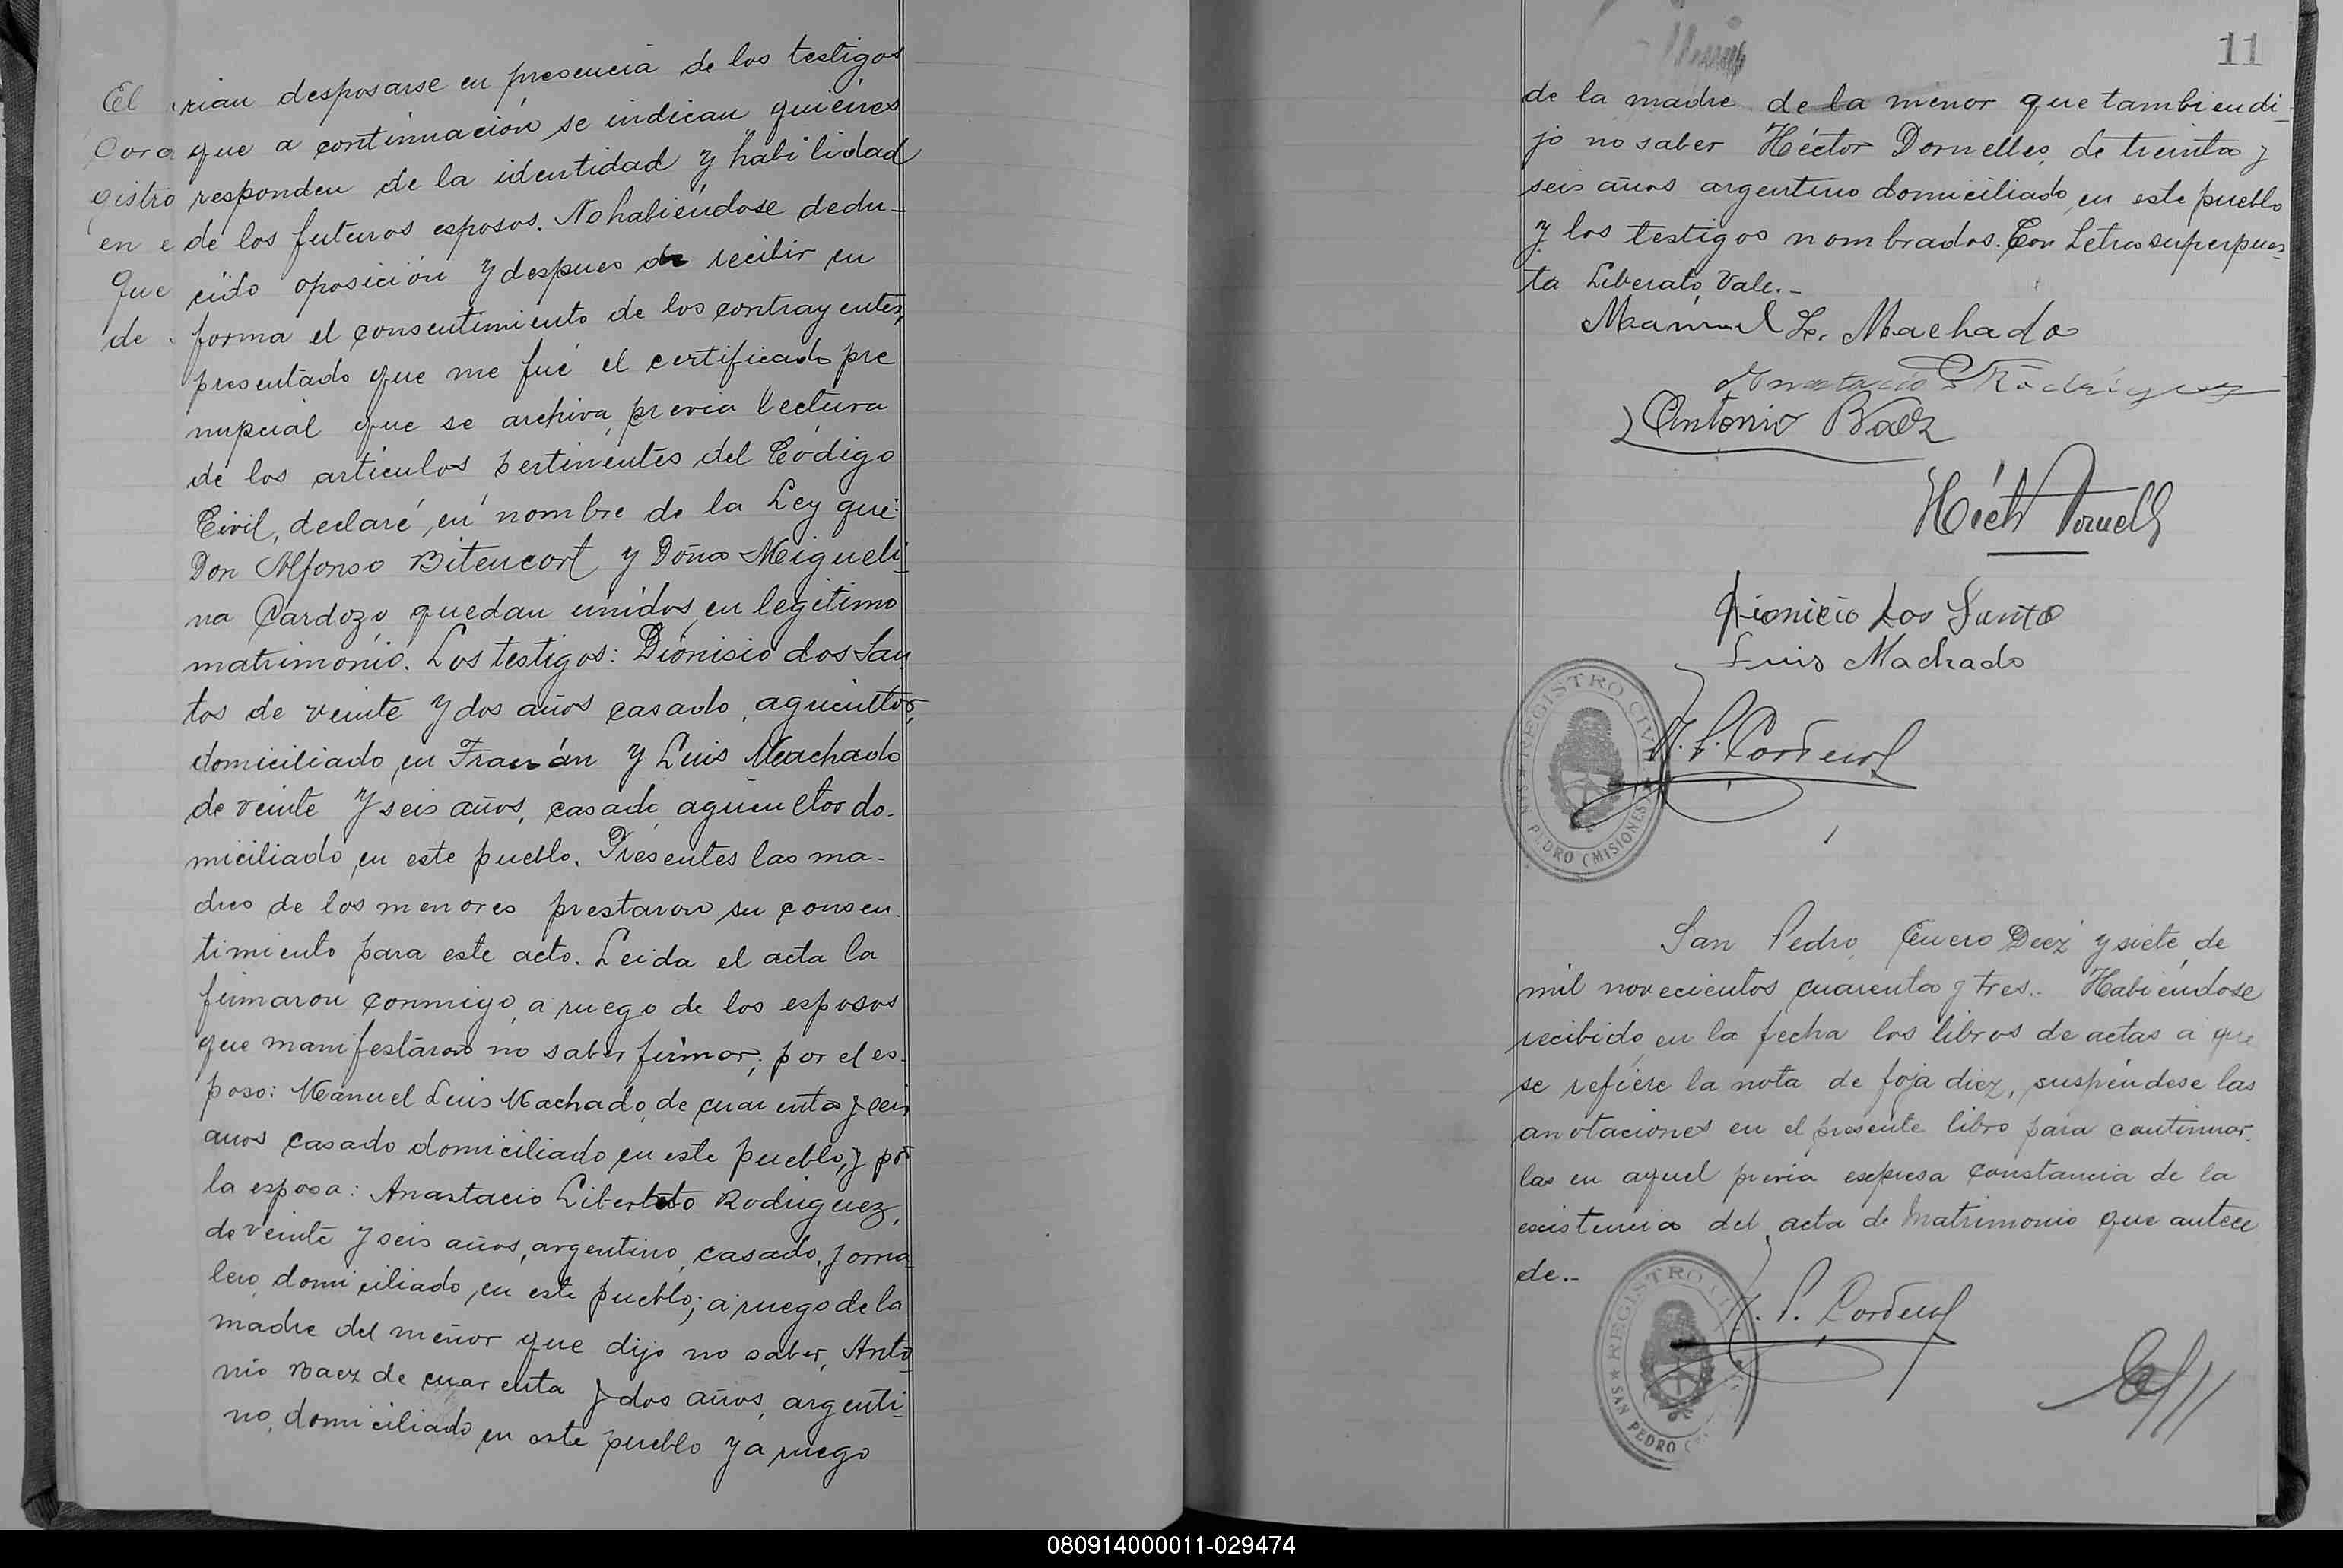 El
Cora
gistro
en e
que
de
rian desposarse en presencia de los testigos
que a continuación se indican quiénes
responden de la identidad y habilidad
de los futuros esposos. No habiéndose dedu-
cido oposición y despues de recibir en
forma el consentimiento de los contrayentes,
presentado que me fué el certificado pre
nupcial que se archiva, previa lectura
de los artículos pertinentes del Código
Civil, declaré en nombre de la Ley que:
Don Alfonso Bitencort y Doña Migueli-
na Cardozo quedan unidos en legítimo
matrimonio. Los testigos: Dionisio dos San
tos de veinte y dos años casado, agricultor,
domiciliado en Fracrán y Luis Machado
de veinte y seis años, casado agricultor do-
miciliado en este pueblo. Presentes las ma-
dres de los menores prestaron su consen-
timiento para este acto. Leida el acta la
firmaron conmigo, a ruego de los esposos
que manifestaron no saber firmar; por el es-
poso: Manuel Luis Machado, de cuarenta y seis
años casado domiciliado en este pueblo, y por
la esposa: Anastacio Liberato Rodriguez,
de veinte y seis años, argentino, casado, jorna
lero, domiciliado en este pueblo; a ruego de la
madre del menor que dijo no saber, Anto
nio Baez de cuarenta y dos años, argenti-
no, domiciliado en este pueblo y a ruego
11
de la madre de la menor que tambien di-
jo no saber Héctor Dornelles, de treinta y
seis años argentino domiciliado en este pueblo
y los testigos nombrados. Con Letra superpues-
ta Liberato, Vale.-
Manuel L. Machado
Anastacio L. Rodriguez
Antonio Baez
Héct Dornells
Dionicio Dos Santo
Luis Machado
REGISTRO CIVIL
SAN PEDRO (MISIONES)
San Pedro, Enero Diez y siete de
mil novecientos cuarenta y tres.- Habiéndose
recibido en la fecha los libros de actas a que
se refiere la nota de foja diez, suspéndese las
anotaciones en el presente libro para continuar-
las en aquel previa expresa constancia de la
existencia del acta de Matrimonio que antece
de.-
REGISTRO
SAN PEDRO
080914000011-029474